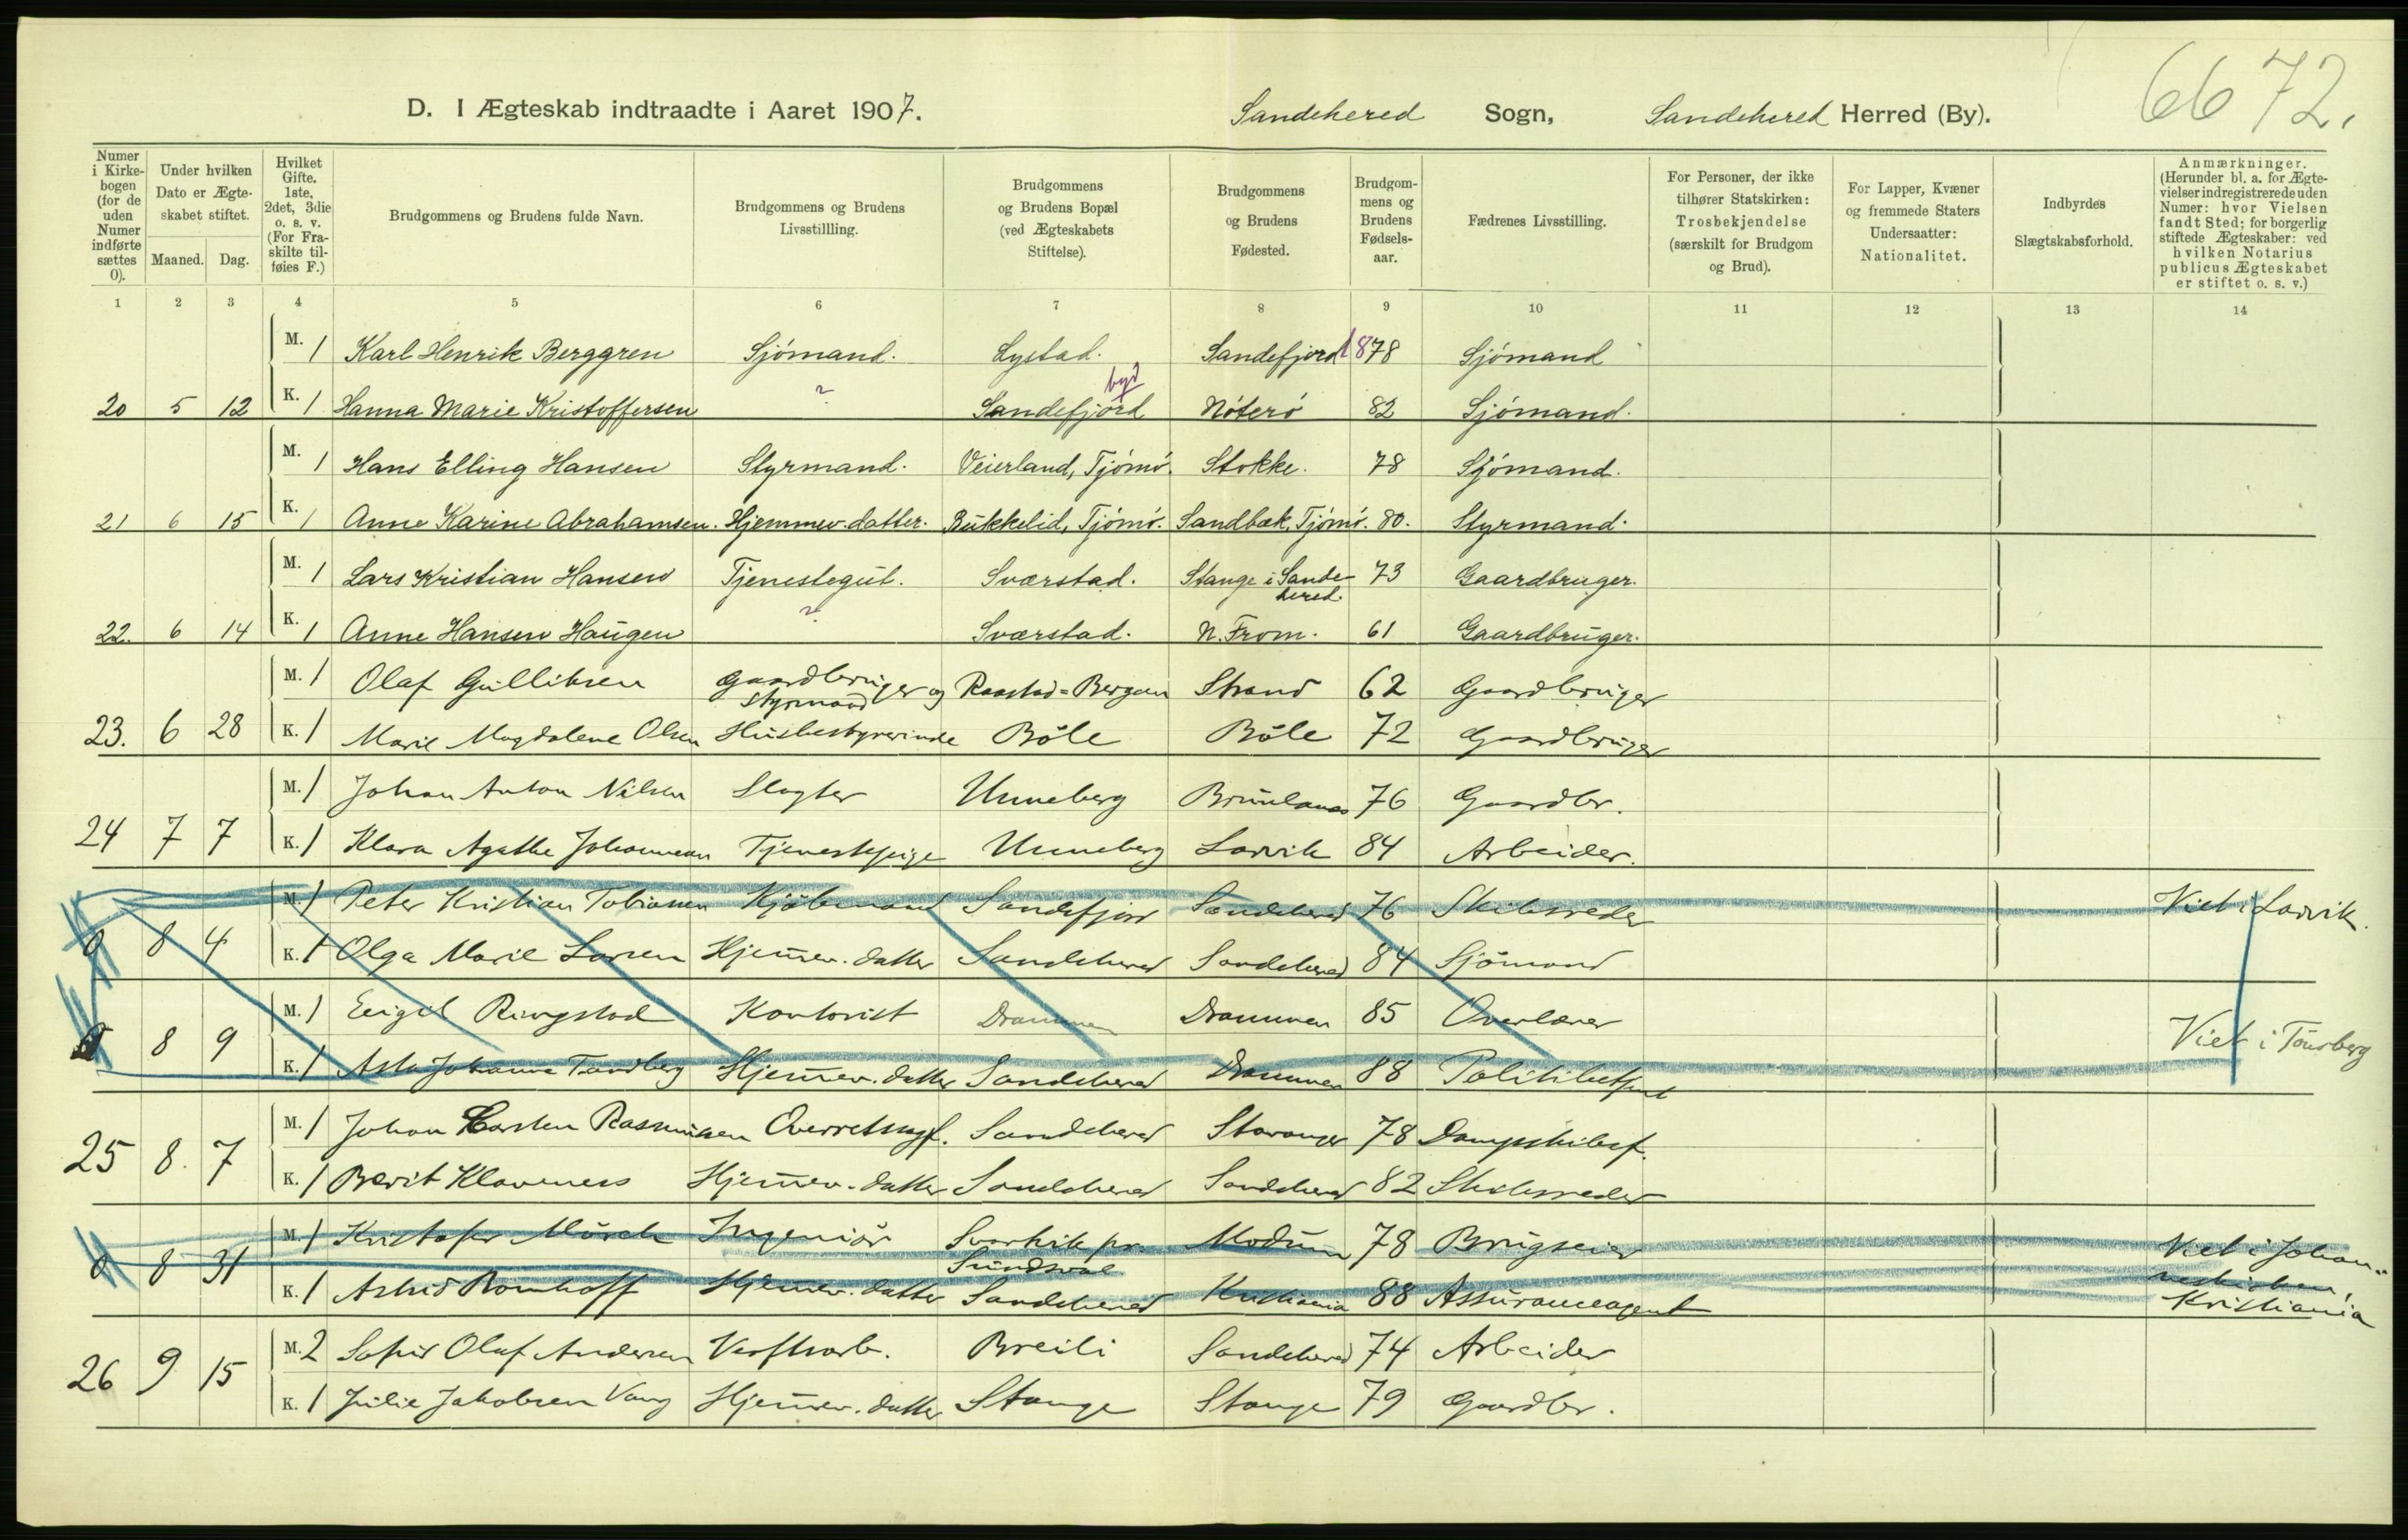 6672.
D. I Ægteskab indtraadte i Aaret 1907. Sandehered Sogn, Sandehered Herred (By).
Numer i Kirkebogen (for de uden Numer indførte sættes 0).
Under hvilken Dato er Ægteskabet stiftet.
Maaned. Dag.
Hvilket Gifte. 1ste, 2det, 3die o. s. v. (For Fraskilte tilføies F.)
Brudgommens og Brudens fulde Navn.
Brudgommens og Brudens Livsstillling.
Brudgommens og Brudens Bopæl (ved Ægteskabets Stiftelse).
Brudgommens og Brudens Fødested.
Brudgommens og Brudens Fødselsaar.
Fædrenes Livsstilling.
For Personer, der ikke tilhører Statskirken: Trosbekjendelse (særskilt for Brudgom og Brud).
For Lapper, Kvæner og fremmede Staters Undersaatter: Nationalitet.
Indbyrdes Slægtskabsforhold.
Anmærkninger. (Herunder bl. a. for Ægtevielser indregistrerede uden Numer: hvor Vielsen fandt Sted; for borgerlig stiftede Ægteskaber: ved hvilken Notarius publicus Ægteskabet er stiftet o. s. v.)
1 2 3 4 5 6 7 8 9 10 11 12 13 14
M. 1 Karl Henrik Berggren Sjómand. Lystad. Sandefjord 1878 Sjómand
byd
20 5 12 K. 1 Hanna Marie Kristoffersen ? Sandefjord Nóteró 82 Sjómand.
M. 1 Hans Elling Hansen Styrmand. Veierland, Tjómó. Stokke. 78 Sjómand.
21 6 15 K. 1 Anne Karine Abrahamsen. Hjemmev. datter. Bukkelid, Tjómó. Sandbæk, Tjómó. 80. Styrmand.
M. 1 Lars Kristian Hansen Tjenestegut. Sværstad. Stange i Sandehered. 73 Gaardbruger.
22. 6 14 K. 1 Anne Hansen Haugen ? Sværstad. N. From. 61 Gaardbruger.
M. 1 Olaf Gulliksen Gaardbruger og Styrmand Raastad=Bergan Strand 62 Gaardbruger
23. 6 28 K. 1 Marie Magdalene Olsen Husbestyrerinde Böle Böle 72 Gaardbruger
M. 1 Johan Anton Nilsen Slagter Unneberg Brunlanæs 76 Gaardbr.
24 7 7 K. 1 Klara Agathe Johannesen Tjenestepige Unneberg Larvik 84 Arbeider.
M. 1 Peter Kristian Tobiassen Kjöbmand Sandefjord Sandehered 76 Skibsreder Viet i Larvik.
0 8 4 K. 1 Olga Marie Larsen Hjemmev. datter Sandehered Sandehered 84 Sjömand
M. 1 Eigil Ringstad Kontorist Drammen Drammen 85 Overlærer Viet i Tönsberg
0 8 9 K. 1 Asta Johanne Tandberg Hjemmev. datter Sandehered Drammen 88 Politibetjent
M. 1 Johan Carsten Rasmussen Overretssagf. Sandehered Stavanger 78 Dampskibsf.
25 8. 7 K. 1 Berit Klavenes Hjemmev. datter Sandehered Sandehered 82 Skibsreder
M. 1 Kristofer Mörch Ingeniör Svartvik pr. Sundsval Modum 78 Brugseier Viet i Johanneskirken, Kristiania
0 8 31 K. 1 Astrid Hjemmev. datter Sandehered Kristiania 88 Assuranceagent
M. 2 Sofus Olaf Andersen Verftsarb. Breili Sandehered 74 Arbeider
26 9 15 K. 1 Julie Jakobsen Vang Hjemmev. datter Stange Stange 79 Gaardbr.